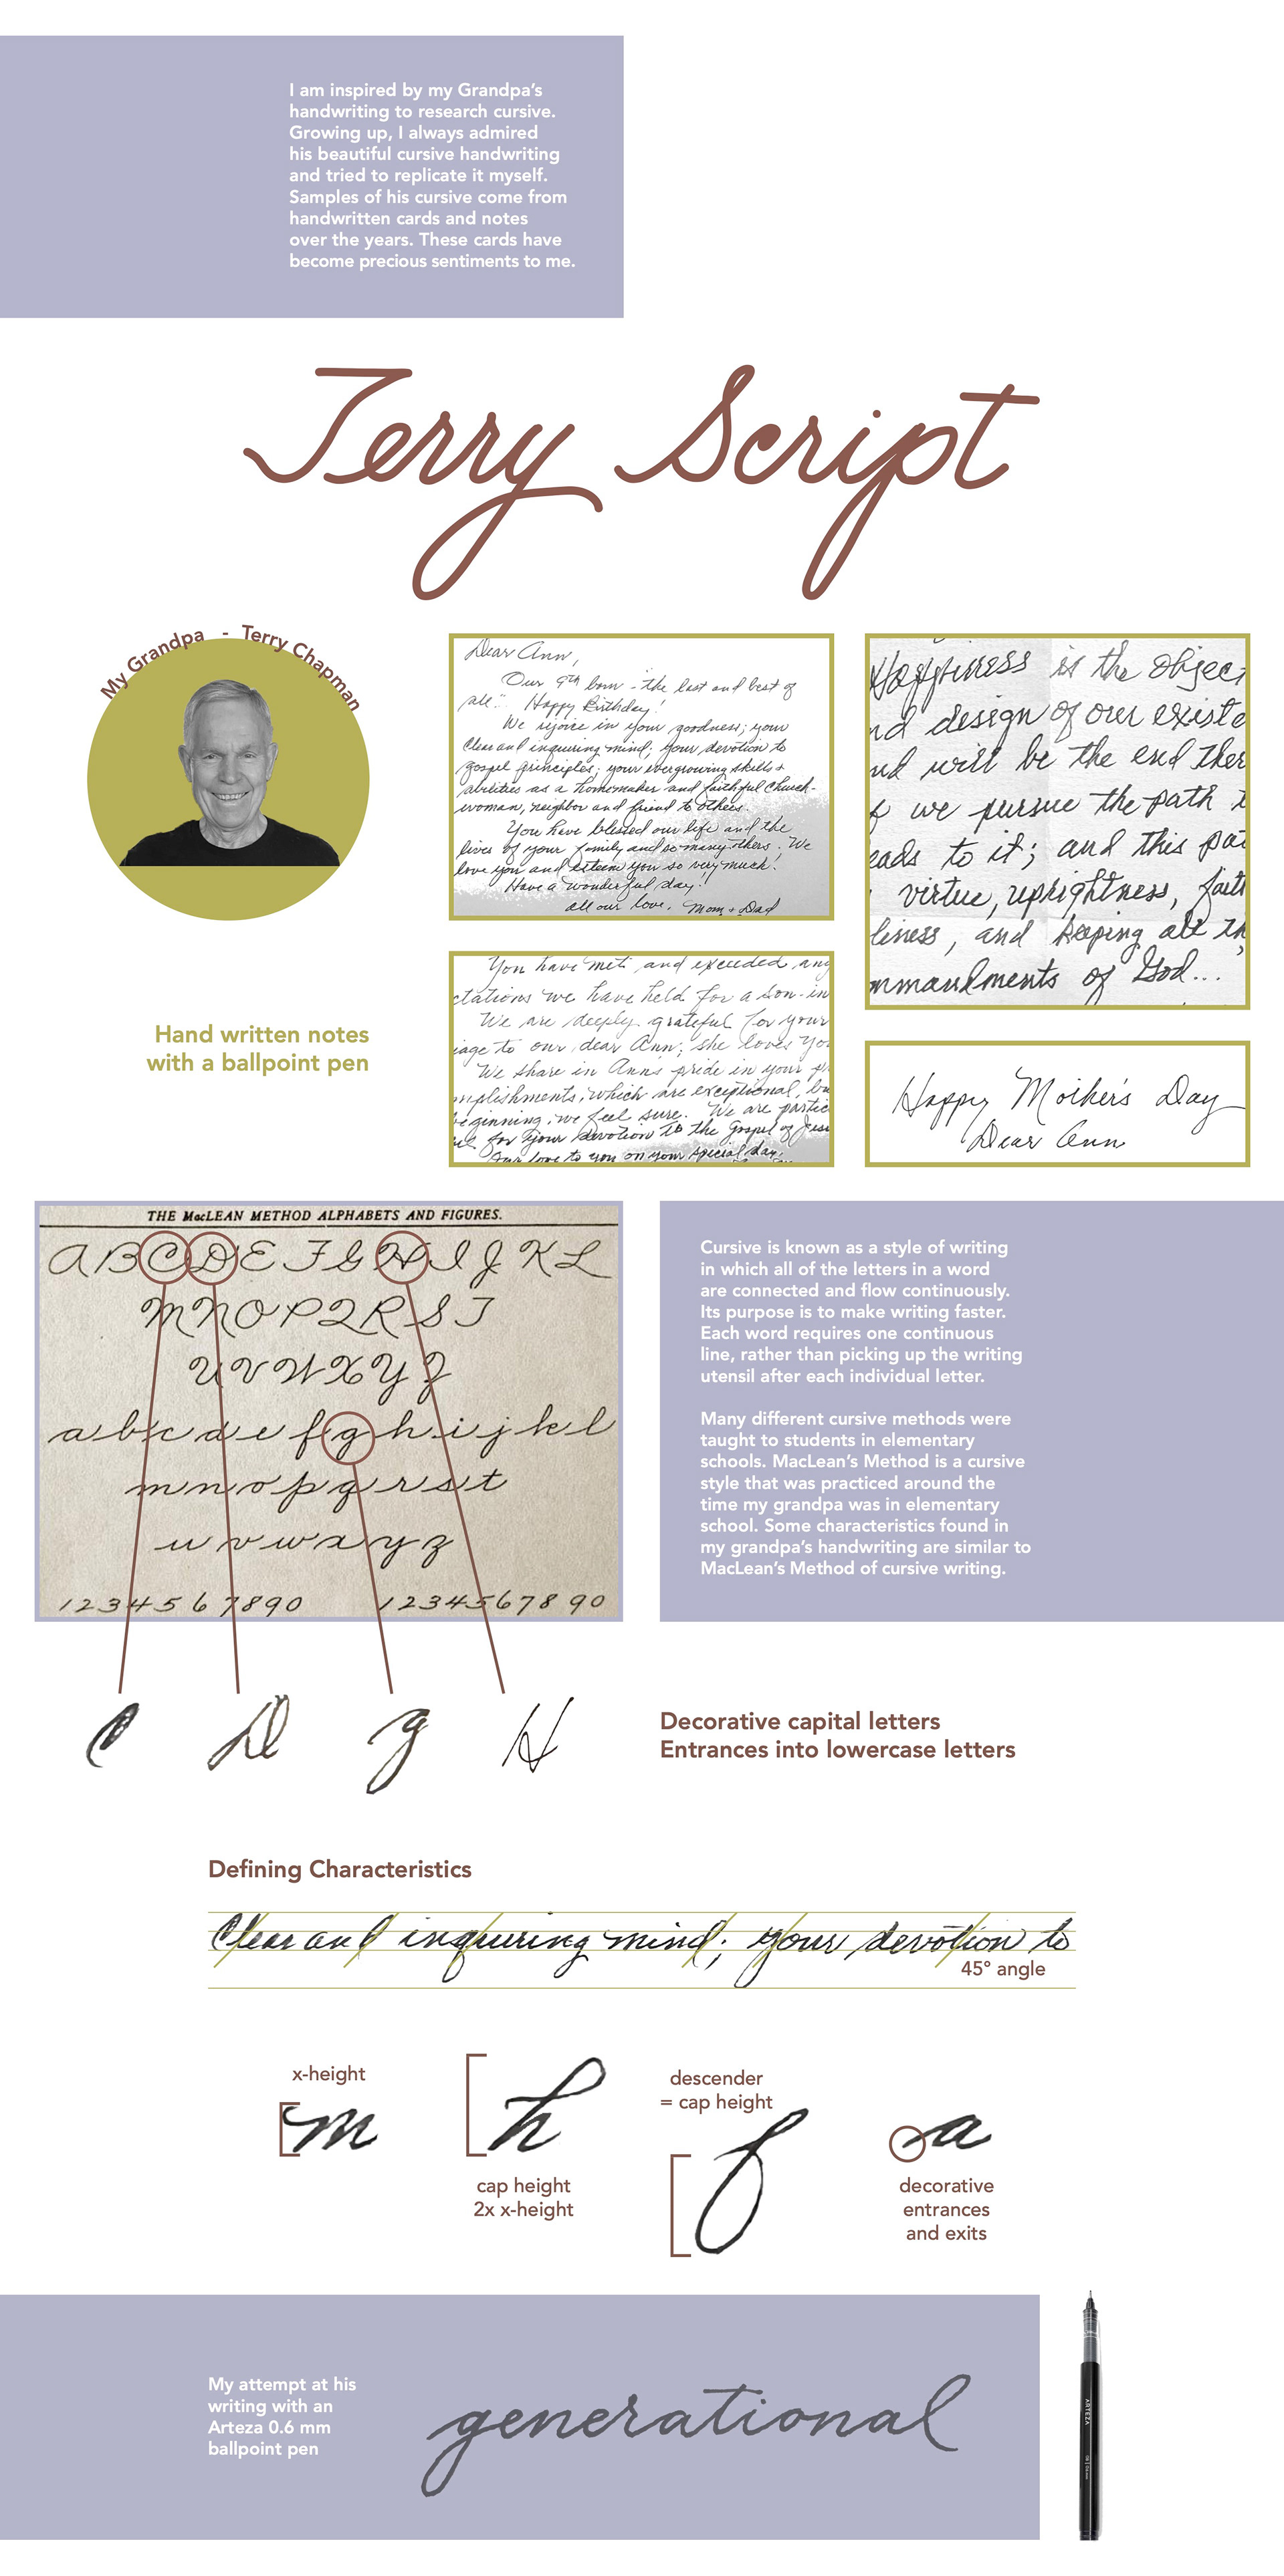 I am inspired by my Grandpa's
handwriting to research cursive.
Growing up, I always admired
his beautiful cursive handwriting
and tried to replicate it myself.
Samples of his cursive come from
handwritten cards and notes
over the years. These cards have
become precious sentiments to me.
Terry Script
My Grandpa - Terry Chapman
Dear Ann,
Our 9th born - "the last and best of
all." Happy Birthday!
We rejoice in your goodness; your
clear and inquiring mind; your devotion to
gospel principles; your evergrowing skills &
abilities as a homemaker and faithful church-
woman, neighbor and friend to others.
You have blessed our life and the
lives of your family and so many others. We
love you and esteem you so very much!
Have a wonderful day!
All our love, Mom & Dad
Happiness is the objec
nd design of our existe
nd will be the end ther
f we pursue the path t
eads to it; and this pat
virtue, uprightness, fait
liness, and keeping all th
mmandments of God...
Hand written notes
with a ballpoint pen
You have met and exceeded any
ctations we have held for a son-in
We are deeply grateful for your
iage to our dear Ann; she loves yo
We share in Ann's pride in your
mplishments, which are exceptional, bu
eginning, we feel sure. We are partic
for your devotion to the Gospel of Jesu
Our love to you on your special day.
Happy Mother's Day
Dear Ann
THE MacLEAN METHOD ALPHABETS AND FIGURES.
A B C D E F G H I J K L
M N O P Q R S T
U V W X Y Z
a b c d e f g h i j k l
m n o p q r s t
u v w x y z
1 2 3 4 5 6 7 8 9 0 1 2 3 4 5 6 7 8 9 0
Cursive is known as a style of writing
in which all of the letters in a word
are connected and flow continuously.
Its purpose is to make writing faster.
Each word requires one continuous
line, rather than picking up the writing
utensil after each individual letter.
Many different cursive methods were
taught to students in elementary
schools. MacLean's Method is a cursive
style that was practiced around the
time my grandpa was in elementary
school. Some characteristics found in
my grandpa's handwriting are similar to
MacLean's Method of cursive writing.
C D g H
Decorative capital letters
Entrances into lowercase letters
Defining Characteristics
Clear and inquiring mind; your devotion to
45° angle
x-height
m
h
cap height
2x x-height
descender
= cap height
f
a
decorative
entrances
and exits
My attempt at his
writing with an
Arteza 0.6 mm
ballpoint pen
generational
ARTEZA